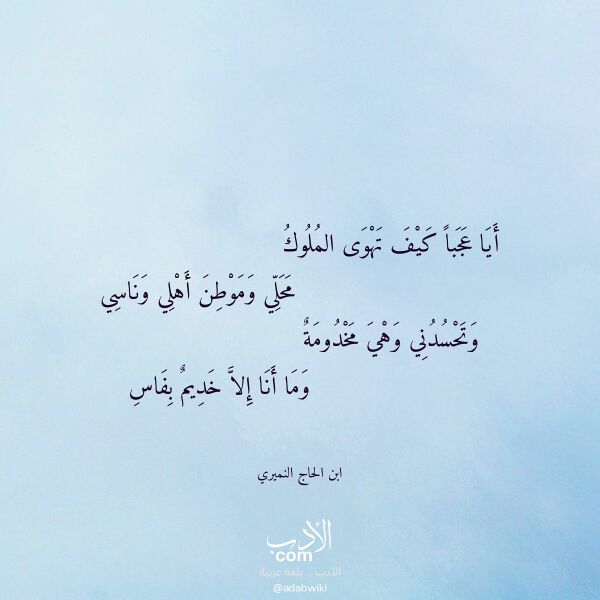 أَيَا عَجَبَاً كَيْفَ تَهْوَى المُلُوكُ
مَحَلِّي وَمَوْطِنَ أَهْلِي وَنَاسِي
وَتَحْسُدُنِي وَهْيَ مَخْدُومَةٌ
وَمَا أَنَا إِلاَّ خَدِيمٌ بِفَاسِ
ابن الحاج النميري
الأدب
com
الأدب .. بلغة عربية
@adabwiki